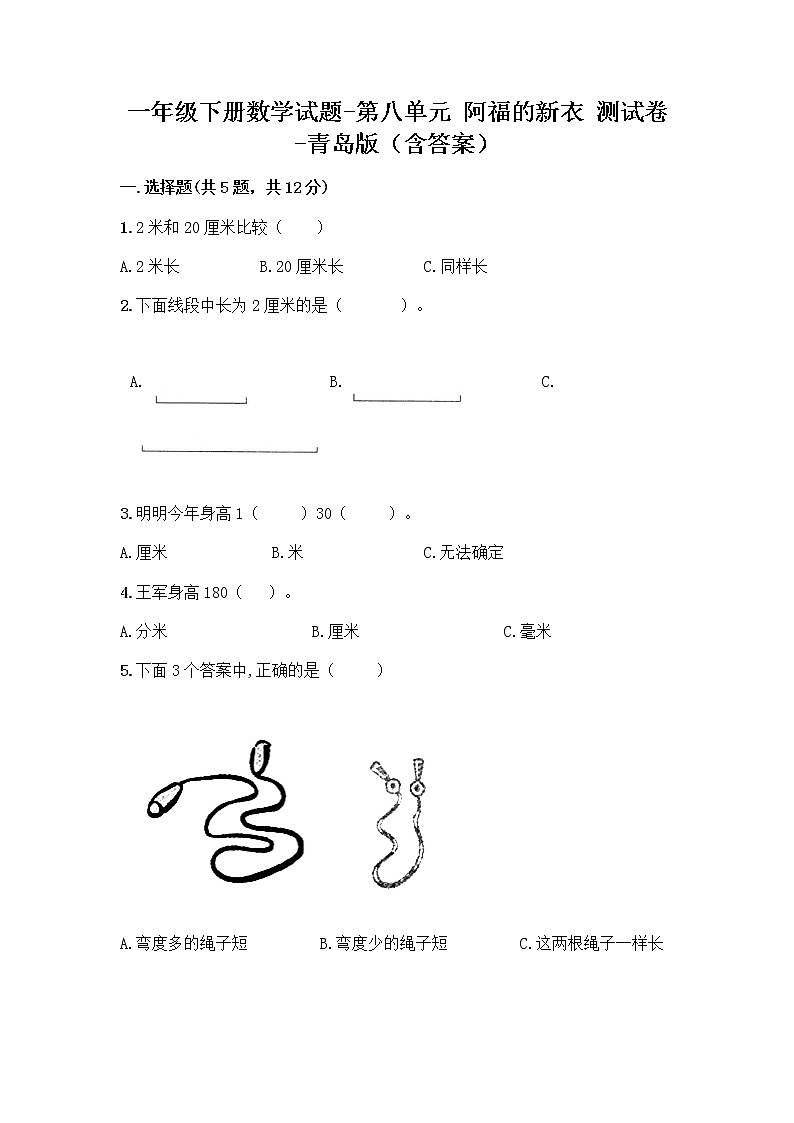 一年级下册数学试题-第八单元 阿福的新衣 测试卷
-青岛版（含答案）
一.选择题(共5题，共12分)
1.2米和20厘米比较（    ）
A.2米长 B.20厘米长 C.同样长
2.下面线段中长为2厘米的是（    ）。
A. B. C.
3.明明今年身高1（    ）30（    ）。
A.厘米 B.米 C.无法确定
4.王军身高180（   ）。
A.分米 B.厘米 C.毫米
5.下面3个答案中,正确的是（    ）
A.弯度多的绳子短 B.弯度少的绳子短 C.这两根绳子一样长